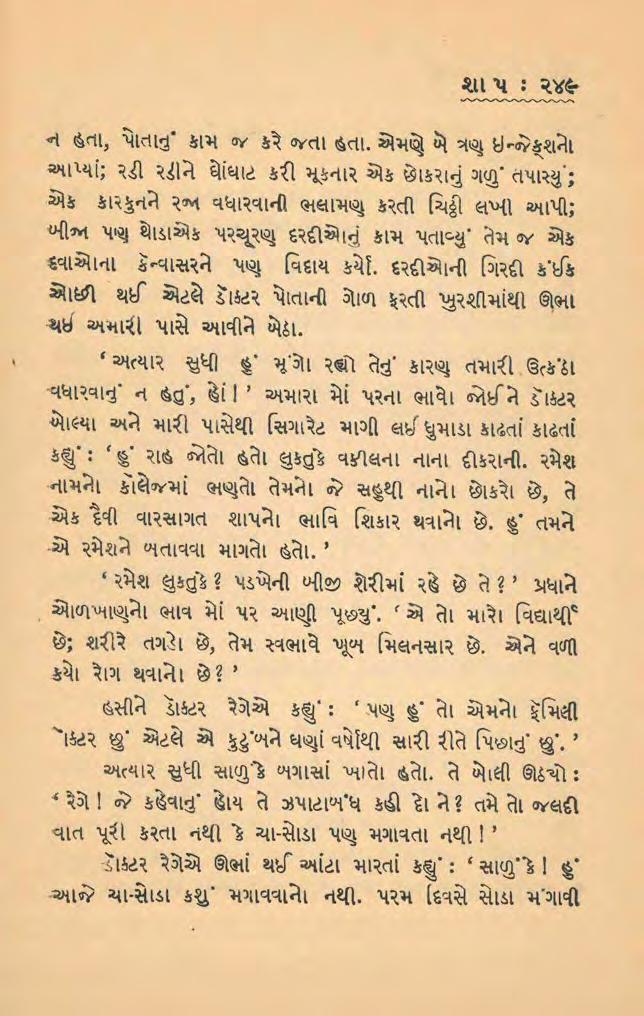 શાપ : ૨૪૯
ન હતા, પોતાનું કામ જ કરે જતા હતા. એમણે બે ત્રણ ઇન્જેક્શનો
આપ્યાં; રડી રડીને ઘોંઘાટ કરી મૂકનાર એક છોકરાનું ગળું તપાસ્યું;
એક કારકુનને રજા વધારવાની ભલામણ કરતી ચિઠ્ઠી લખી આપી;
બીજા પણ થોડાએક પરચૂરણ દરદીઓનું કામ પતાવ્યું તેમ જ એક
દવાઓના કૅન્વાસરને પણ વિદાય કર્યો. દરદીઓની ગિરદી કંઈક
ઓછી થઈ એટલે ડૉક્ટર પોતાની ગોળ ફરતી ખુરશીમાંથી ઊભા
થઈ અમારી પાસે આવીને બેઠા.
‘અત્યાર સુધી હું મૂંગો રહ્યો તેનું કારણ તમારી ઉત્કંઠા
વધારવાનું ન હતું, હોં!’ અમારા મોં પરના ભાવો જોઈને ડૉક્ટર
બોલ્યા અને મારી પાસેથી સિગારેટ માગી લઈ ધુમાડા કાઢતાં કાઢતાં
કહ્યું: ‘હું રાહ જોતો હતો લુકતુકે વકીલના નાના દીકરાની. રમેશ
નામનો કૉલેજમાં ભણતો તેમનો જે સહુથી નાનો છોકરો છે, તે
એક દૈવી વારસાગત શાપનો ભાવિ શિકાર થવાનો છે. હું તમને
એ રમેશને બતાવવા માગતો હતો.’
‘રમેશ લુકતુકે? પડખેની બીજી શેરીમાં રહે છે તે?’ પ્રધાને
ઓળખાણનો ભાવ મોં પર આણી પૂછ્યું. ‘એ તો મારો વિદ્યાર્થી
છે; શરીરે તગડો છે, તેમ સ્વભાવે ખૂબ મિલનસાર છે. એને વળી
કયો રોગ થવાનો છે?’
હસીને ડૉક્ટર રેગેએ કહ્યું: ‘પણ હું તો એમનો ફૅમિલી
ૉક્ટર છું એટલે એ કુટુંબને ઘણાં વર્ષોથી સારી રીતે પિછાનું છું.’
અત્યાર સુધી સાળુંકે બગાસાં ખાતો હતો. તે બોલી ઊઠ્યો:
‘રેગે! જે કહેવાનું હોય તે ઝપાટાબંધ કહી દો ને? તમે તો જલદી
વાત પૂરી કરતા નથી કે ચા-સોડા પણ મગાવતા નથી!’
ડૉક્ટર રેગેએ ઊભાં થઈ આંટા મારતાં કહ્યું: ‘સાળુંકે! હું
આજે ચા-સોડા કશું મગાવવાનો નથી. પરમ દિવસે સોડા મંગાવી